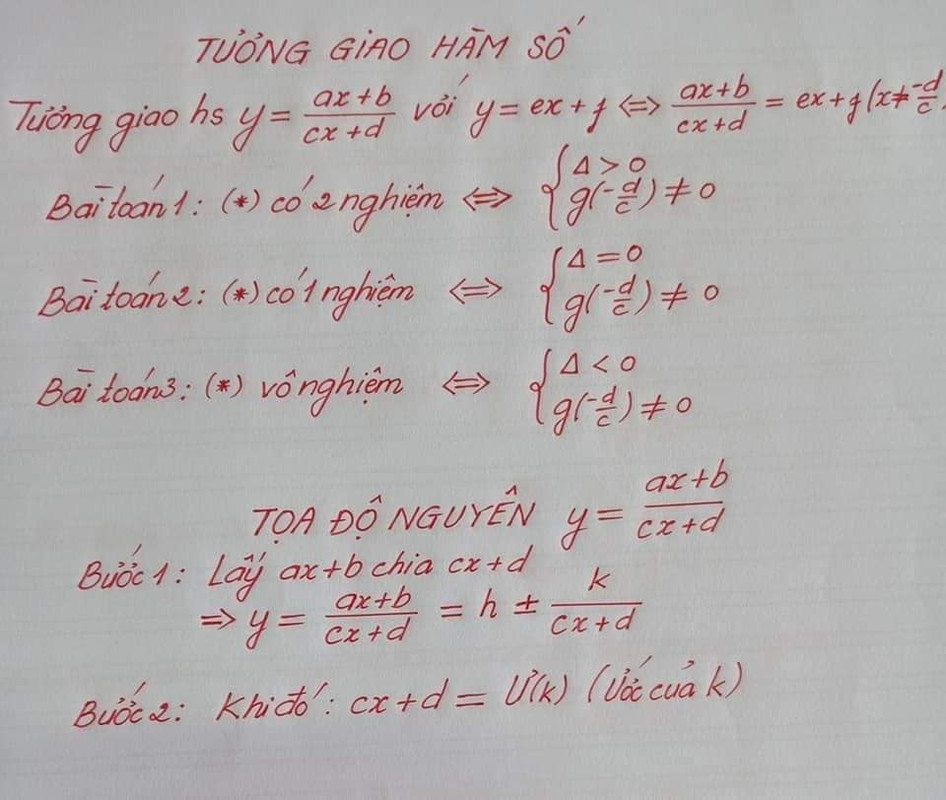 TƯƠNG GIAO HÀM SỐ
Tương giao hs y = \frac{ax+b}{cx+d} với y = ex + f ⇔ \frac{ax+b}{cx+d} = ex + f (x ≠ \frac{-d}{c}
Bài toán 1: (*) có 2 nghiệm ⇔ { Δ > 0
g(-\frac{d}{c}) ≠ 0
Bài toán 2: (*) có 1 nghiệm ⇔ { Δ = 0
g(-\frac{d}{c}) ≠ 0
Bài toán 3: (*) vô nghiệm ⇔ { Δ < 0
g(-\frac{d}{c}) ≠ 0
TỌA ĐỘ NGUYÊN y = \frac{ax+b}{cx+d}
Bước 1: Lấy ax+b chia cx+d
⇒ y = \frac{ax+b}{cx+d} = h ± \frac{k}{cx+d}
Bước 2: Khi đó: cx+d = Ư(k) (Ước của k)